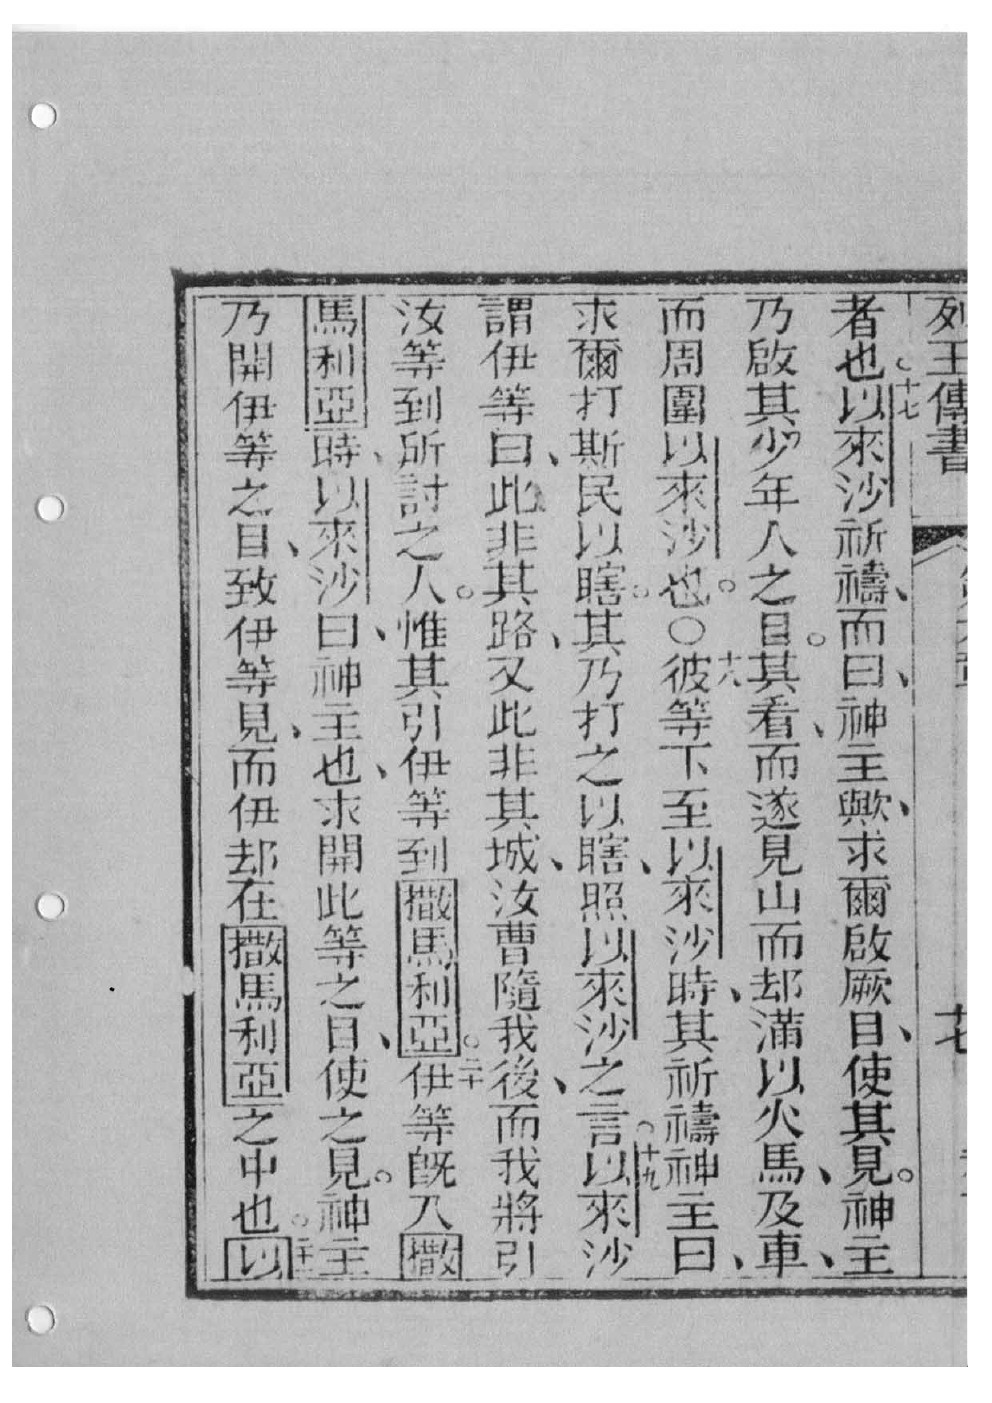 列王傳書 十七
者也。十七以來沙祈禱、而曰、神主歟、求爾啟厥目、使其見。神主
乃啟其少年人之目。其看、而遂見山而却滿以火馬、及車、
而周圍以來沙也。〇十八彼等下至以來沙時、其祈禱神主曰、
求爾打斯民以瞎。其乃打之以瞎、照以來沙之言。十九以來沙
謂伊等曰、此非其路、又此非其城、汝曹隨我後、而我將引
汝等到所討之人。惟其引伊等到撒馬利亞。二十伊等既入撒
馬利亞時、以來沙曰、神主也、求開此等之目、使之見。神主
乃開伊等之目、致伊等見、而伊却在撒馬利亞之中也。二十一以